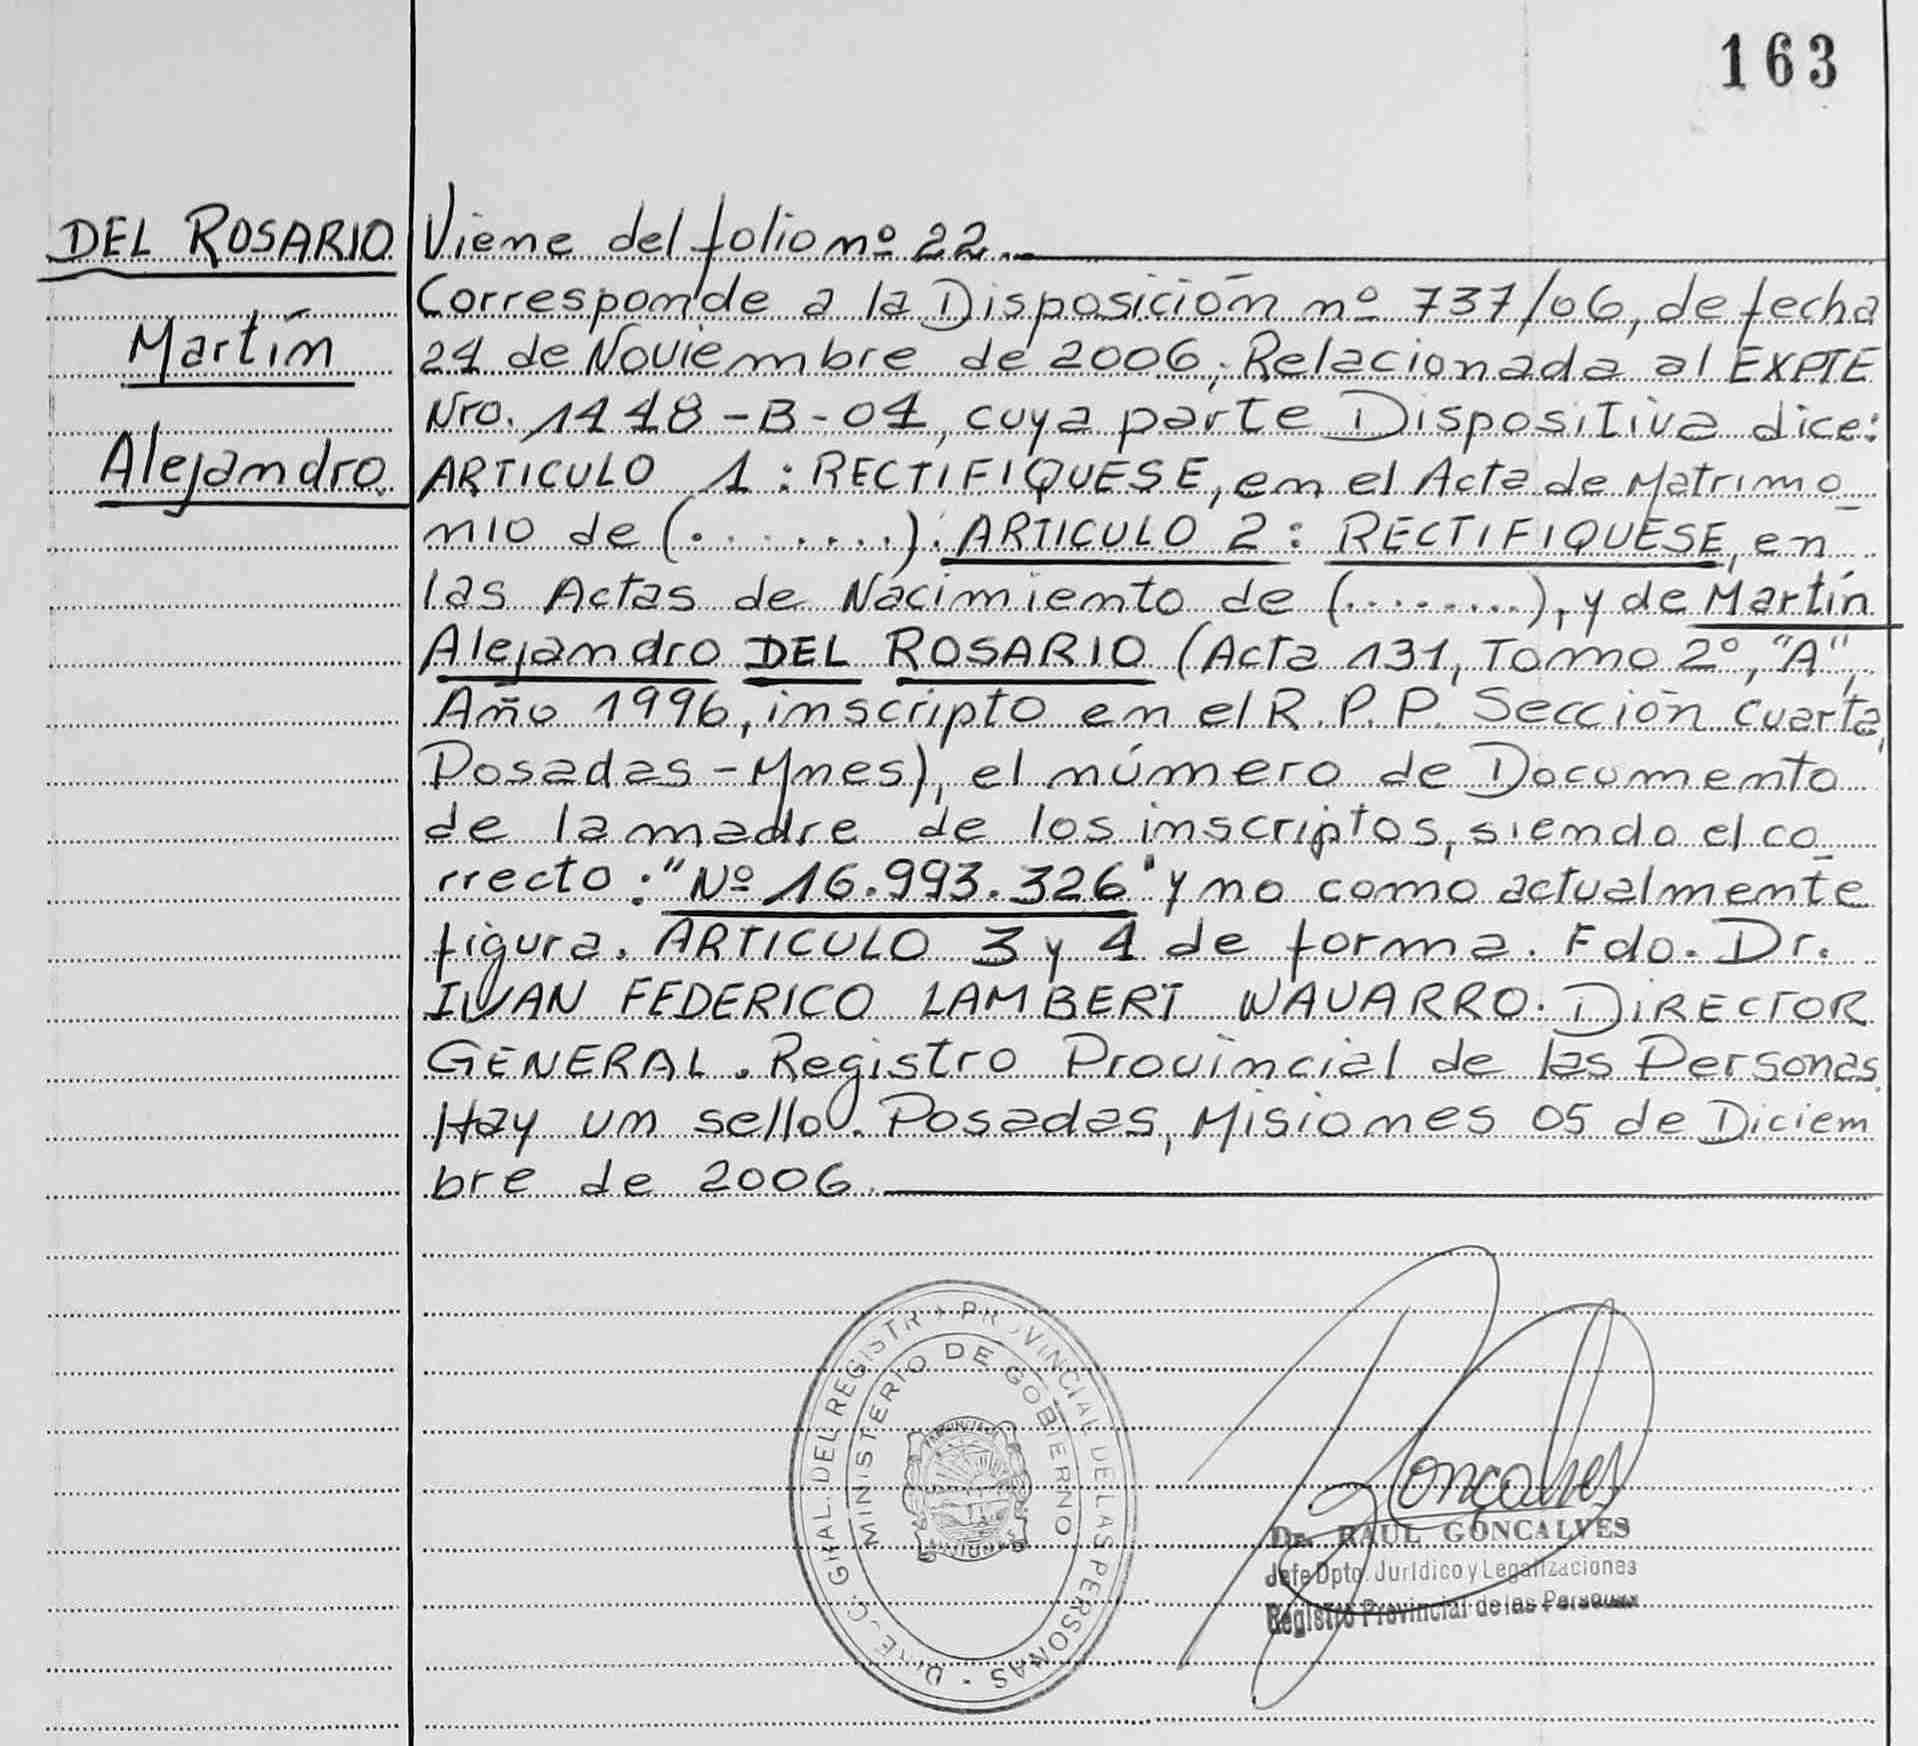 163
DEL ROSARIO
Martín
Alejandro
Viene del folio nº 22..
Corresponde a la Disposición nº 737/06, de fecha
24 de Noviembre de 2006, Relacionada al EXPTE
Nro. 1448-B-04, cuya parte Dispositiva dice:
ARTICULO 1: RECTIFIQUESE, en el Acta de Matrimo_
nio de (........). ARTICULO 2: RECTIFIQUESE, en
las Actas de Nacimiento de (........), y de Martín
Alejandro DEL ROSARIO (Acta 131, Tomo 2º, "A",
Año 1996, inscripto en el R.P.P. Sección Cuarta,
Posadas-Mnes), el número de Documento
de la madre de los inscriptos, siendo el co_
rrecto: "Nº 16.993.326" y no como actualmente
figura. ARTICULO 3 y 4 de forma. Fdo. Dr.
IVAN FEDERICO LAMBERT NAVARRO. DIRECTOR
GENERAL. Registro Provincial de las Personas.
Hay un sello. Posadas, Misiones 05 de Diciem
bre de 2006.
DIREC. GRAL. DEL REGISTRO PROVINCIAL DE LAS PERSONAS
MINISTERIO DE GOBIERNO
Goncalves
Dr. RAUL GONCALVES
Jefe Dpto. Jurídico y Legalizaciones
Registro Provincial de las Personas